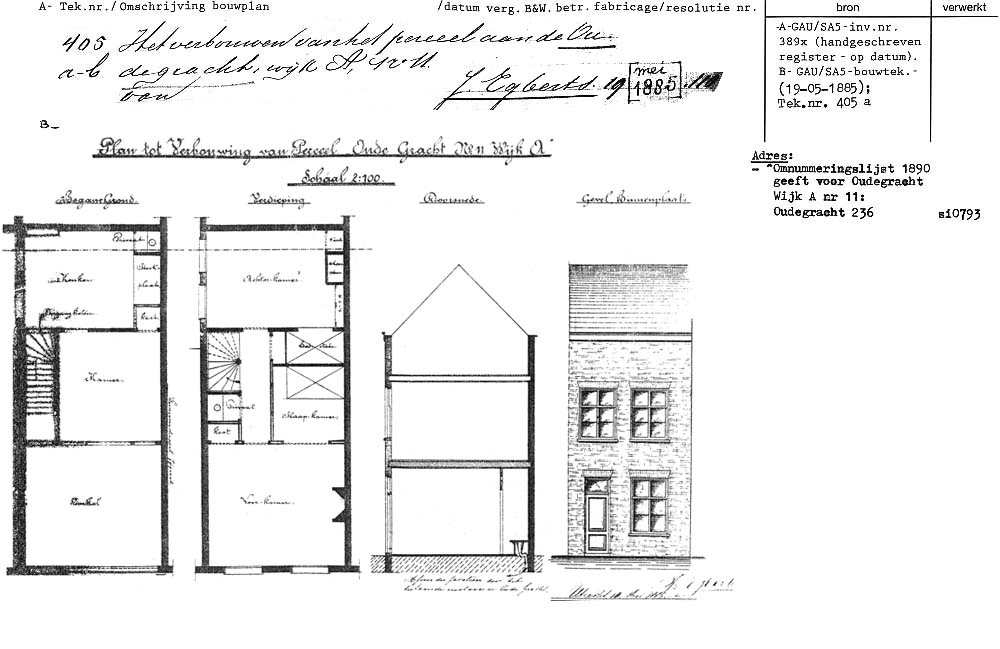 A- Tek.nr./ Omschrijving bouwplan
/datum verg. B&W. betr. fabricage/resolutie nr.
bron
verwerkt
405 Het verbouwen van het perceel aan de Ou-
a-b degracht, wijk A, No 11.
van
J. Egberts. 19 mei 1885.
-A-GAU/SA5-inv.nr.
389x (handgeschreven
register - op datum).
B- GAU/SA5-bouwtek.-
(19-05-1885);
Tek.nr. 405 a
B-
Plan tot Verbouwing van Perceel Oude Gracht No 11 Wijk A
Schaal 2:100.
Adres:
- "Omnummeringslijst 1890
geeft voor Oudegracht
Wijk A nr 11:
Oudegracht 236
si0793
Begane Grond.
Verdieping
Doorsnede
Gevel Binnenplaats
Privaat
Keuken
Kast
Kamer
Winkel
Achter-kamer
Kast
Bedstede
Privaat
Slaap-kamer
Kast
Voor-kamer
Utrecht